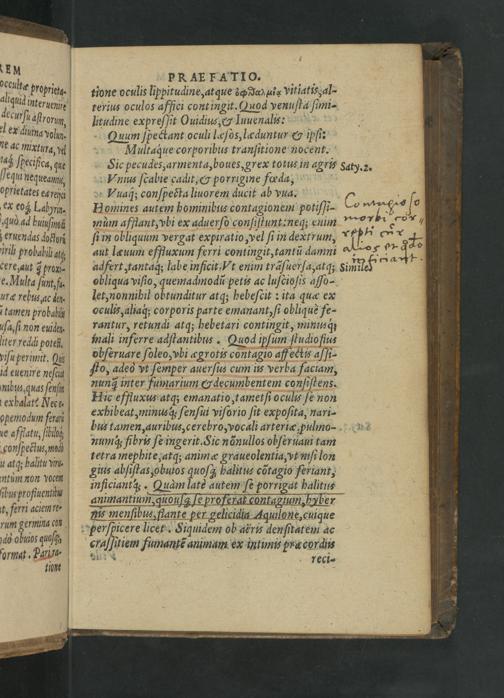 REM
occultæ proprieta-
aliquid interuenire
decursu astrorum,
el ex diuina volun-
ne ac mixtura, vel
specifica, que
ssequi nequeamus,
oprietates ea reijci
ex eoq; Labyrin-
quò ad huiusmodi
eruendas doctorū
birili probabili atq;
cere, aut
Multa sunt,
turæ rebus, ac den-
tamen probabiliū
usa, si non euiden-
liter reddi potest.
visu perimit. Quis
id euenire nescit
nibus, quas sensim
exhalat? Nece-
opemodum ferari
afflatu, sibilo,
conspectus, modi
atq; halitu viru-
ntum non vocem
sibus profluentibus
nt, ferri aciem re-
rum germina con
dò obuios quosq;
format. Pari ra-
tione
PRAEFATIO.
tione oculis lippitudine, atque ὀφθαλμίας vitiatis, al-
terius oculos affici contingit. Quod venusta simi-
litudine expressit Ouidius, & Iuuenalis:
Quum spectant oculi læsos, læduntur & ipsi:
Multaque corporibus transitione nocent.
Sic pecudes, armenta, boues, grex totus in agris
Saty.2.
Vnius scabie cadit, & porrigine fœda,
Vuaq; conspecta liuorem ducit ab vua.
Homines autem hominibus contagionem potissi-
mùm afflant, vbi ex aduerso consistunt: neq; enim
si in obliquum vergat expiratio, vel si in dextrum,
aut læuum effluxum ferri contingit, tantū damni
adfert, tantaq; labe inficit. Vt enim trāsuersa, atq;
obliqua visio, quemadmodū petis ac lusciosis asso-
let, nonnihil obtunditur atq; hebescit: ita quæ ex
oculis, aliaq; corporis parte emanant, si obliquè fe-
rantur, retundi atq; hebetari contingit, minusq;
mali inferre adstantibus. Quod ipsum studiosius
obseruare soleo, vbi ægrotis contagio affectis assi-
sto, adeò vt semper auersus cum iis verba faciam,
nunq̄ inter fumarium & decumbentem consistens.
Hic effluxus atq; emanatio, tametsi oculis se non
exhibeat, minusq; sensui visorio sit exposita, nari-
bus tamen, auribus, cerebro, vocali arteriæ, pulmo-
numq; fibris se ingerit. Sic nōnullos obseruaui tam
tetra mephite, atq; animæ graueolentia, vt nisi lon
gius absistas, obuios quosq; halitus cōtagio feriant,
inficiantq;. Quàm latè autem se porrigat halitus
animantium, quousq; se proferat contagium, hyber
nis mensibus, flante per gelicidia Aquilone, cuique
perspicere licet. Siquidem ob aëris densitatem ac
crassitiem fumantē animam ex intimis præcordiis
reci-
Contagioso
morbi cor-
repti cur
alios et
inficiant.
Simile